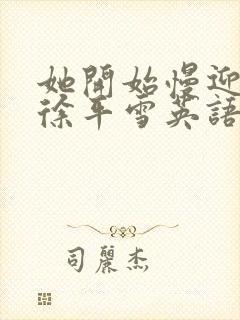 她開始慢迎
徐平雪英語
司麗杰